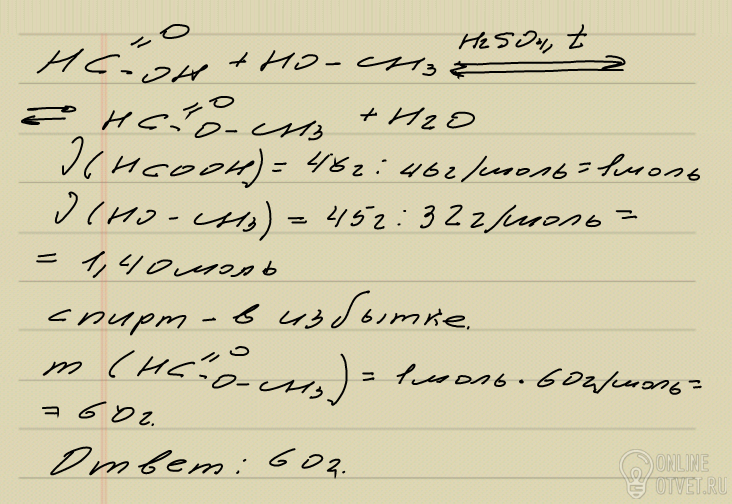 H2SO4, t
HC=O-OH + HO-CH3 ⇄
⇄ HC=O-O-CH3 + H2O
ν(HCOOH) = 46г : 46г/моль = 1моль
ν(HO-CH3) = 45г : 32г/моль =
= 1,40моль
спирт - в избытке.
m (HC=O-O-CH3) = 1моль · 60г/моль =
= 60г.
Ответ: 60г.
ONLINE
OTVET.RU